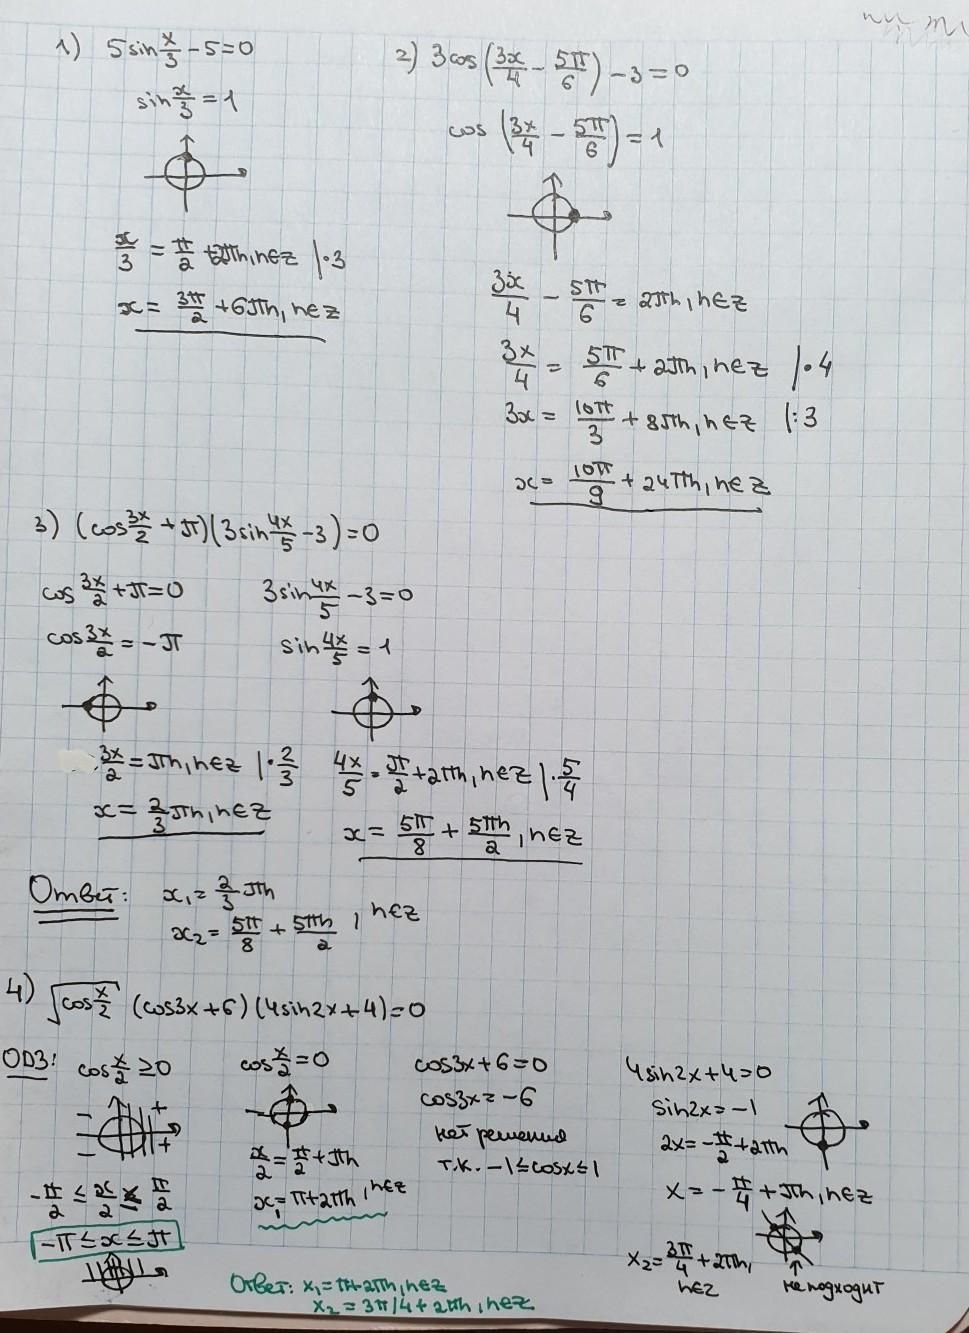 1) 5sin x/3 - 5 = 0
sin x/3 = 1
x/3 = π/2 + 2πn, n∈z |·3
x = 3π/2 + 6πn, n∈z
2) 3cos(3x/4 - 5π/6) - 3 = 0
cos(3x/4 - 5π/6) = 1
3x/4 - 5π/6 = 2πn, n∈z
3x/4 = 5π/6 + 2πn, n∈z |·4
3x = 10π/3 + 8πn, n∈z |:3
x = 10π/9 + 24πn, n∈z
3) (cos 3x/2 + π)(3sin 4x/5 - 3) = 0
cos 3x/2 + π = 0
cos 3x/2 = -π
3x/2 = πn, n∈z |·2/3
x = 2/3 πn, n∈z
3sin 4x/5 - 3 = 0
sin 4x/5 = 1
4x/5 = π/2 + 2πn, n∈z |·5/4
x = 5π/8 + 5πn/2, n∈z
Ответ: x₁ = 2/3 πn
x₂ = 5π/8 + 5πn/2, n∈z
4) √(cos x/2) (cos3x + 6)(4sin2x + 4) = 0
ОДЗ: cos x/2 ≥ 0
- +
- +
-π/2 ≤ x/2 ≤ π/2
-π ≤ x ≤ π
cos x/2 = 0
x/2 = π/2 + πn
x₁ = π + 2πn, n∈z
cos3x + 6 = 0
cos3x = -6
нет решения
т.к. -1 ≤ cosx ≤ 1
4sin2x + 4 = 0
sin2x = -1
2x = -π/2 + 2πn
x = -π/4 + πn, n∈z
x₂ = 3π/4 + 2πn,
n∈z
не подходит
Ответ: x₁ = π + 2πn, n∈z
x₂ = 3π/4 + 2πn, n∈z